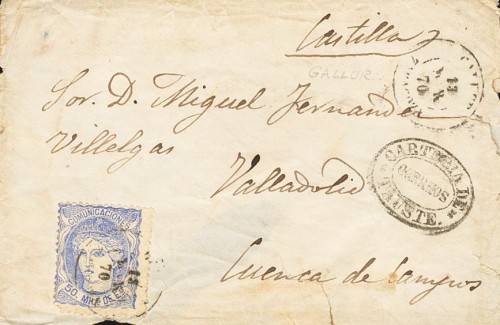 Castilla
GALLUR
Sor. D. Miguel Fernandez
Villelgas
Valladolid
Cuenca de Campos
CARTERIA DE
CORREOS
13
70
COMUNICACIONES
50 MILS DE E
13
70